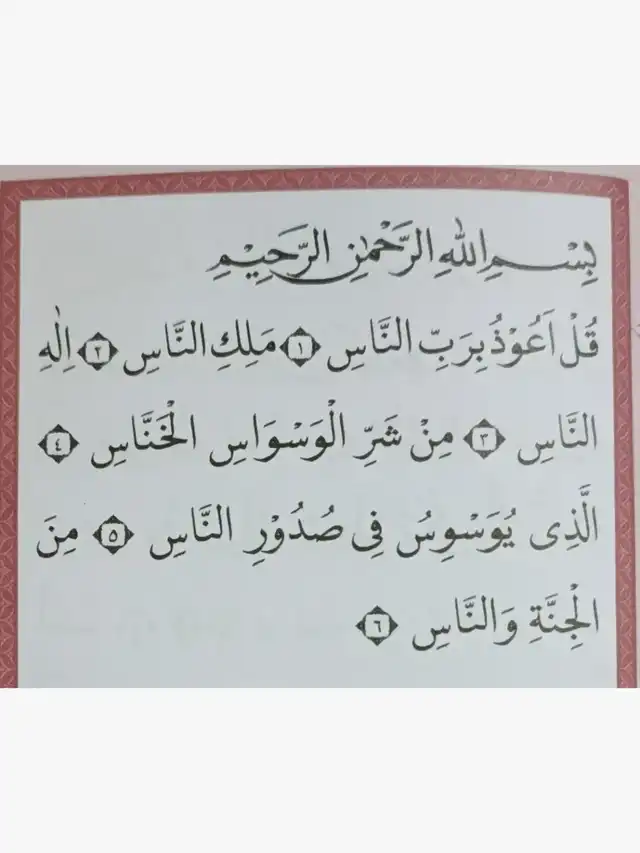 بِسْمِ اللّٰهِ الرَّحْمٰنِ الرَّحِيْمِ
قُلْ اَعُوْذُ بِرَبِّ النَّاسِ ١ مَلِكِ النَّاسِ ٢ اِلٰهِ
النَّاسِ ٣ مِنْ شَرِّ الْوَسْوَاسِ الْخَنَّاسِ ٤
الَّذِى يُوَسْوِسُ فِى صُدُوْرِ النَّاسِ ٥ مِنَ
الْجِنَّةِ وَالنَّاسِ ٦